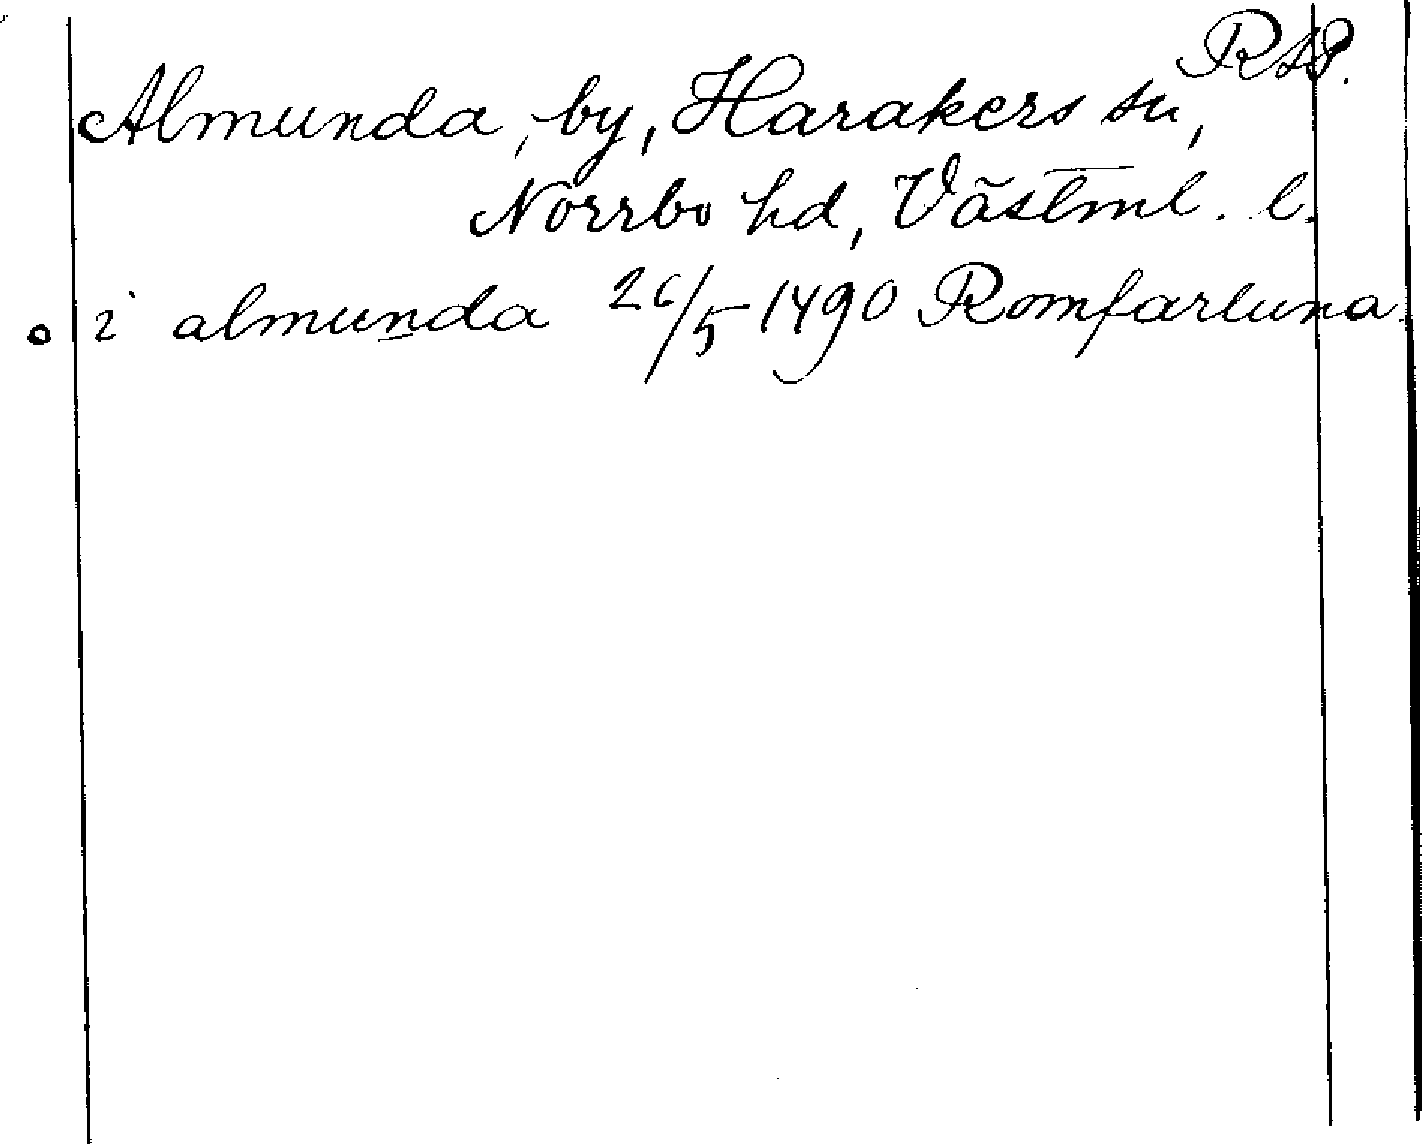 RAP.
Almunda, by, Harakers sn,
Norrbo hd, Västml. l.
i almunda 26/5 1490 Romfartuna